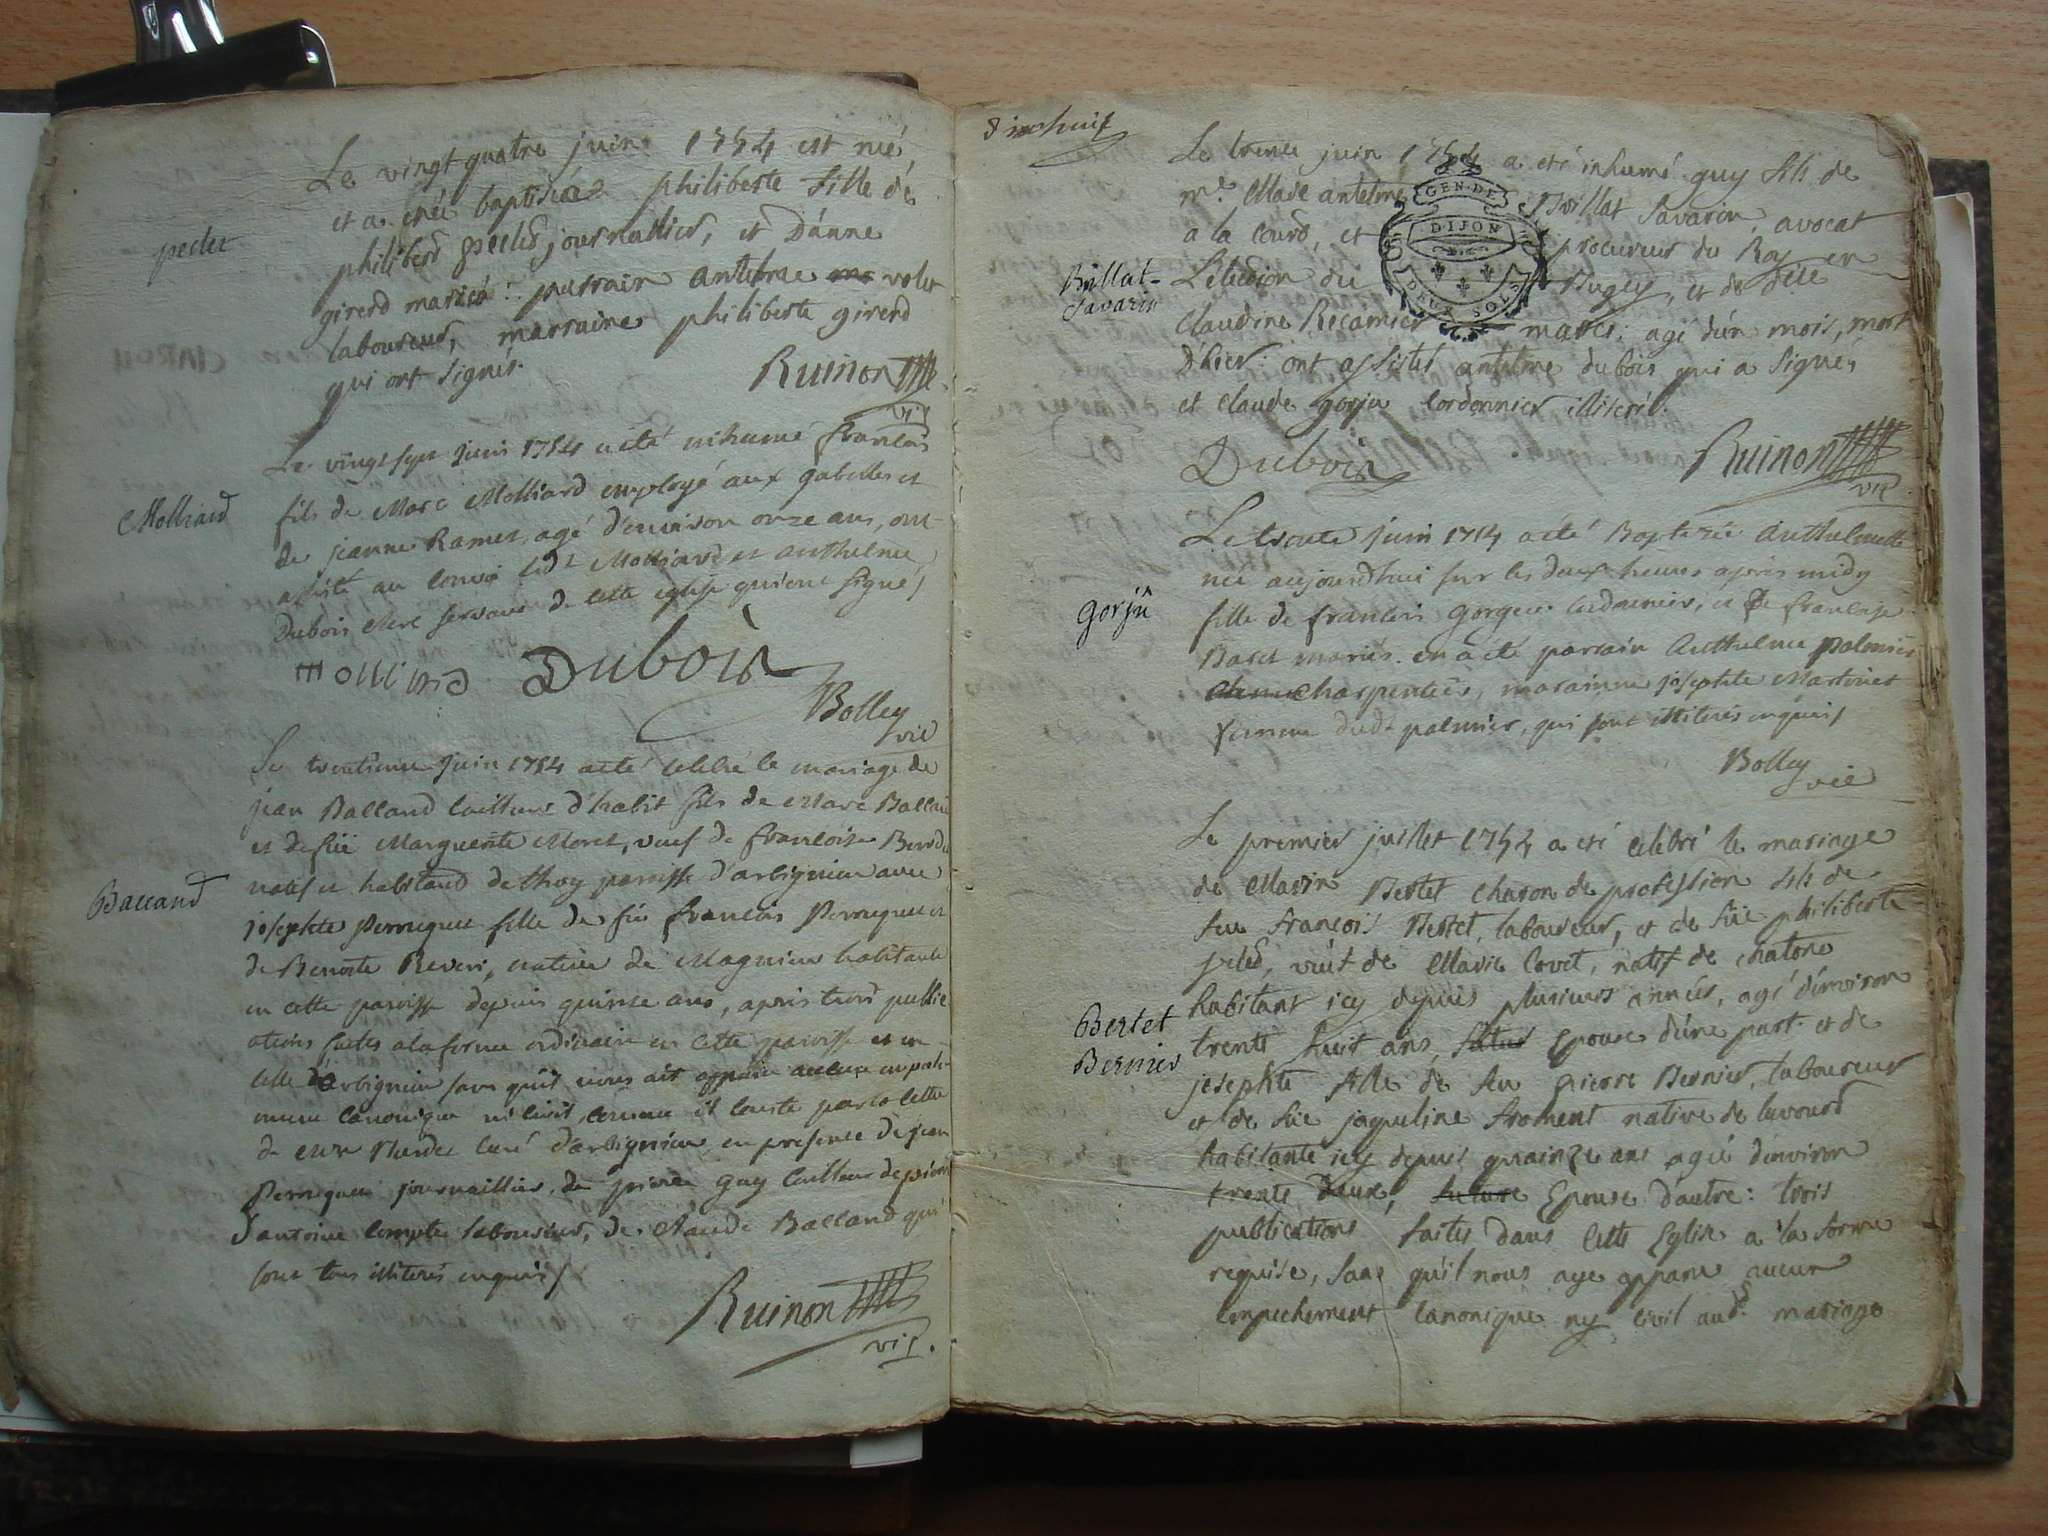 Le vingt quatre juin 1754 est neé,
et a eteé baptiseé philiberte fille de
pecler
philiberd pecler journallier, et d'anne
girerd marieé: parrain antelme volet
laboureur, marraine philiberte girerd
qui ont signés.
Ruinon
vic
Le vingt sept juin 1754 a été inhumé francois
Molliard
fils de Marc Molliard employé aux gabelles et
de jeanne Ramet, agé d'environ onze ans, ont
assisté au convoi led.t Molliard et anthelme
Dubois clerc servant de cette eglise qui ont signé
molliard Dubois
Bolley
vic
Le trentieme juin 1754 a été celebré le mariage de
jean Balland tailleur d'habit fils de Marc Balland
et de füe Marguerite Moret, veuf de francoise
natif et habitant de thoy paroisse d'arbignieu avec
Balland
josephte Perruquet fille de feu francois Perruquet et
de Benoite Reveri, native de Magnieu habitante
en cette paroisse depuis quinze ans, apres trois public
ations faites a la forme ordinaire en cette paroisse et en
celle d'arbignieu sans qu'il nous ait apparu aucun empeche
ment canonique ni civil, comme il conste par la lettre
de curé d'arbignieu, en presence de jean
Perruquet journaillier, de pierre guy tailleur de pierre
d'antoine compte laboureur, de claude Balland qui
sont tous illiterés enquis
Ruinon
vic.
dixhuit
Le trente juin 1754 a eté inhumé guy fils de
m.e Marc antelme Brillat Savarin, avocat
a la cour, et procureur du Roy en
Brillat-
Savarin
L'election du Bugey, et de d.elle
GEN. DE
DIJON
DEUX SOLS
Claudine Recamier mariés: agé d'un mois, mort
d'hier: ont assistés antelme dubois qui a signé,
et claude gorju cordonnier illiteré.
Dubois
Ruinon
vic
Le trente juin 1754 a été Baptizée Anthelmette
née aujourdhui sur les deux heures apres midy
gorju
fille de francois gorgeu cordonnier, et de francoise
mariés. en a été parrain Anthelme palmier
charpentier, maraine josephte Martinet
femme dud.t palmier, qui sont illiterés enquis
Bolley
vic
Le premier juillet 1754 a eté celebré le mariage
de Marin Bertet charon de profession fils de
feu françois Bertet, laboureur, et de füe philiberte
veuf de Marie Covet, natif de chatone
habitant icy depuis plusieurs années, agé d'environ
Bertet
Bernier
trente huit ans, Epoux d'une part: et de
josephte fille de feu pierre Bernier, laboureur
et de füe jaqueline froment native de lavourd
habitante icy depuis quainze ans agée d'environ
trente deux, Epouse d'autre: trois
publications faites dans cette Eglise a la forme
requise, sans quil nous aye apparu aucun
empechement canonique ny civil aud.t mariage